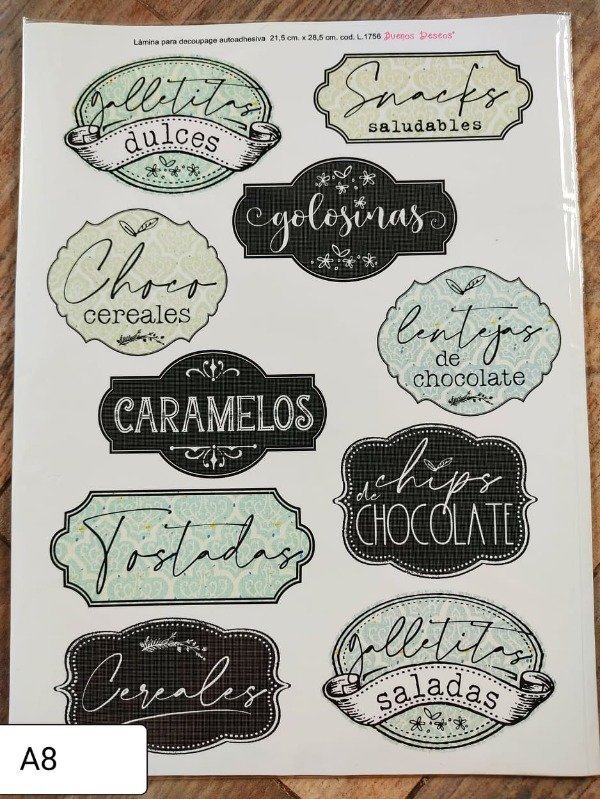 Lámina para decoupage autoadhesiva 21,5 cm. x 28,5 cm. cod. L.1756 Buenos Deseos®
galletitas
dulces
Snacks
saludables
golosinas
Choco
cereales
lentejas
de
chocolate
CARAMELOS
chips
de
CHOCOLATE
Tostadas
Cereales
galletitas
saladas
A8